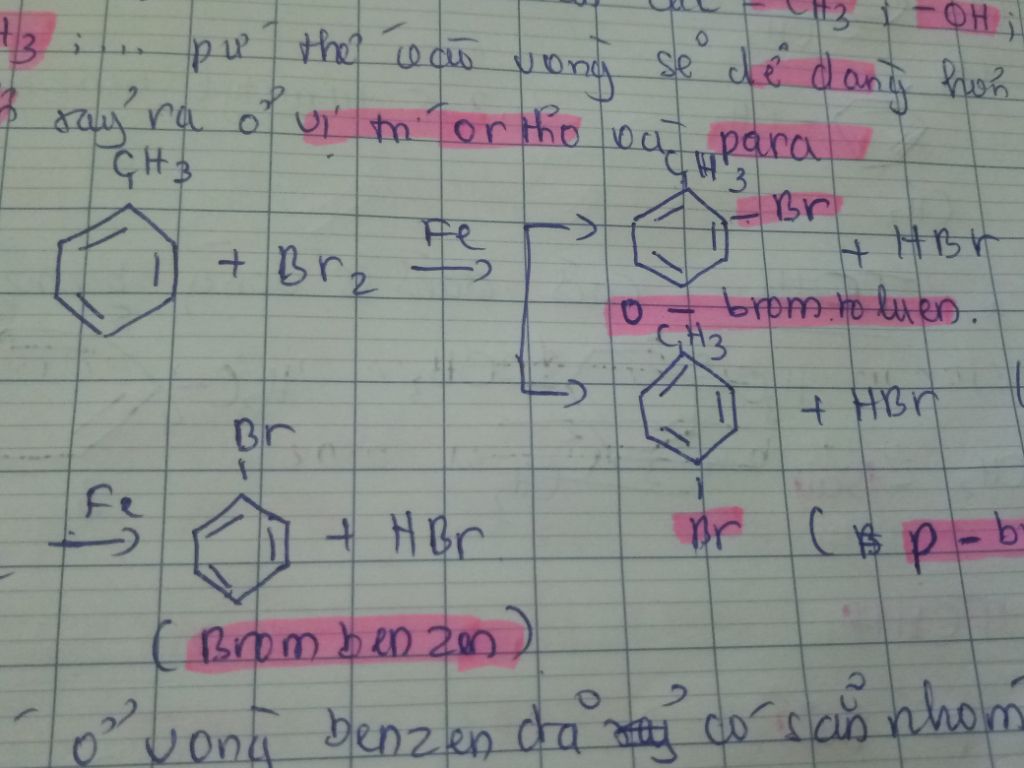 - CH3 ; -OH ;
H3 ; ... pứ thế vào vòng sẽ dễ dàng hơn
xảy ra ở vị trí ortho và para
CH3 CH3
Br
+ Br2 Fe + HBr
o - brom toluen.
CH3
+ HBr
Br
Fe + HBr
Br ( p - b
(Brom benzen)
ở vòng benzen đã có sẵn nhóm